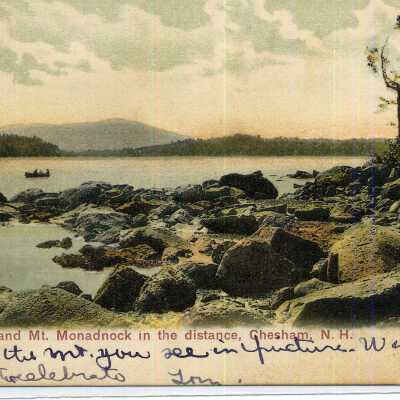 and Mt. Monadnock in the distance, Chesham, N. H.
the Mt. you see in picture. W
celebrate